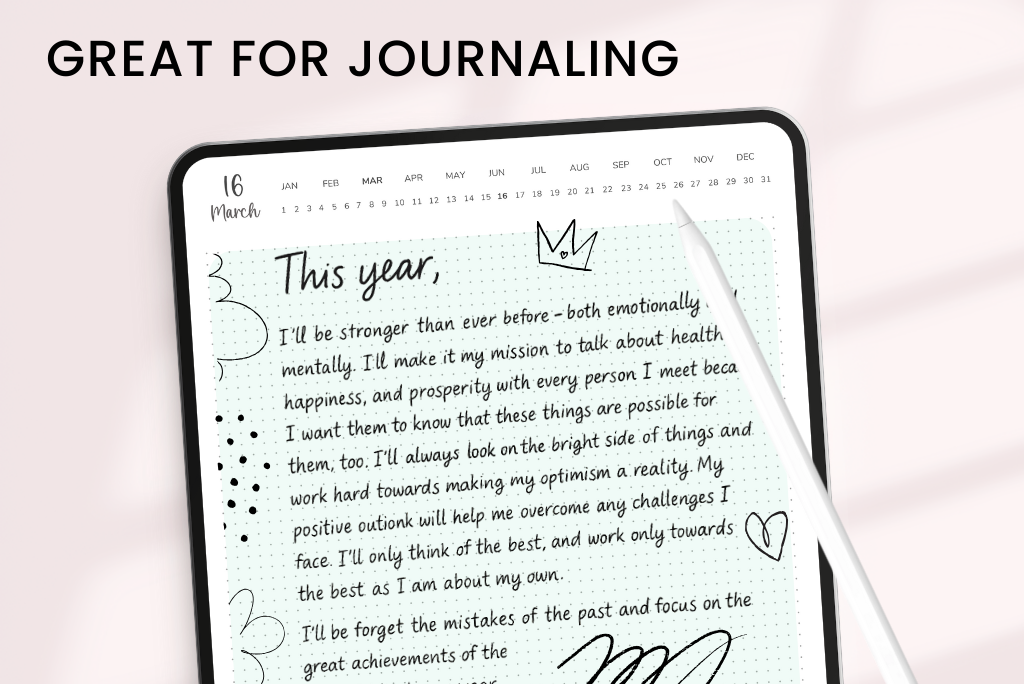 GREAT FOR JOURNALING
16
March
JAN FEB MAR APR MAY JUN JUL AUG SEP OCT NOV DEC
1 2 3 4 5 6 7 8 9 10 11 12 13 14 15 16 17 18 19 20 21 22 23 24 25 26 27 28 29 30 31
This year,
I'll be stronger than ever before - both emotionally
mentally. I'll make it my mission to talk about health
happiness, and prosperity with every person I meet beca
I want them to know that these things are possible for
them, too. I'll always look on the bright side of things and
work hard towards making my optimism a reality. My
positive outionk will help me overcome any challenges I
face. I'll only think of the best, and work only towards
the best as I am about my own.
I'll be forget the mistakes of the past and focus on the
great achievements of the